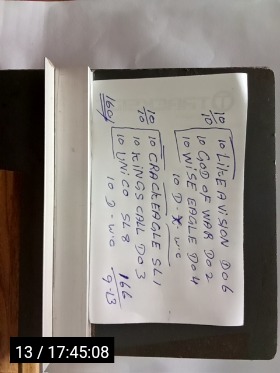 10/10 10 LIKE A VISION DO 6
10 GOD OF WAR DO 2
10 WISE EAGLE DO 4
10 D - W.C
10/10 10 CRACKEAGLE SL 1
10 KINGS CALL DO 3
10 UNICO SL 8 166
160/ 10 D - W.C 9-13
13 / 17:45:08